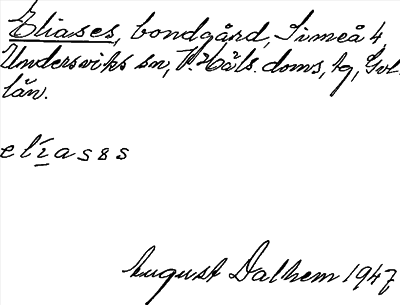 Eliases, bondgård, Simeå 4
Undersviks sn, V. Häls. doms, tg, Gvl.
län.
elıases
August Dalhem 1947